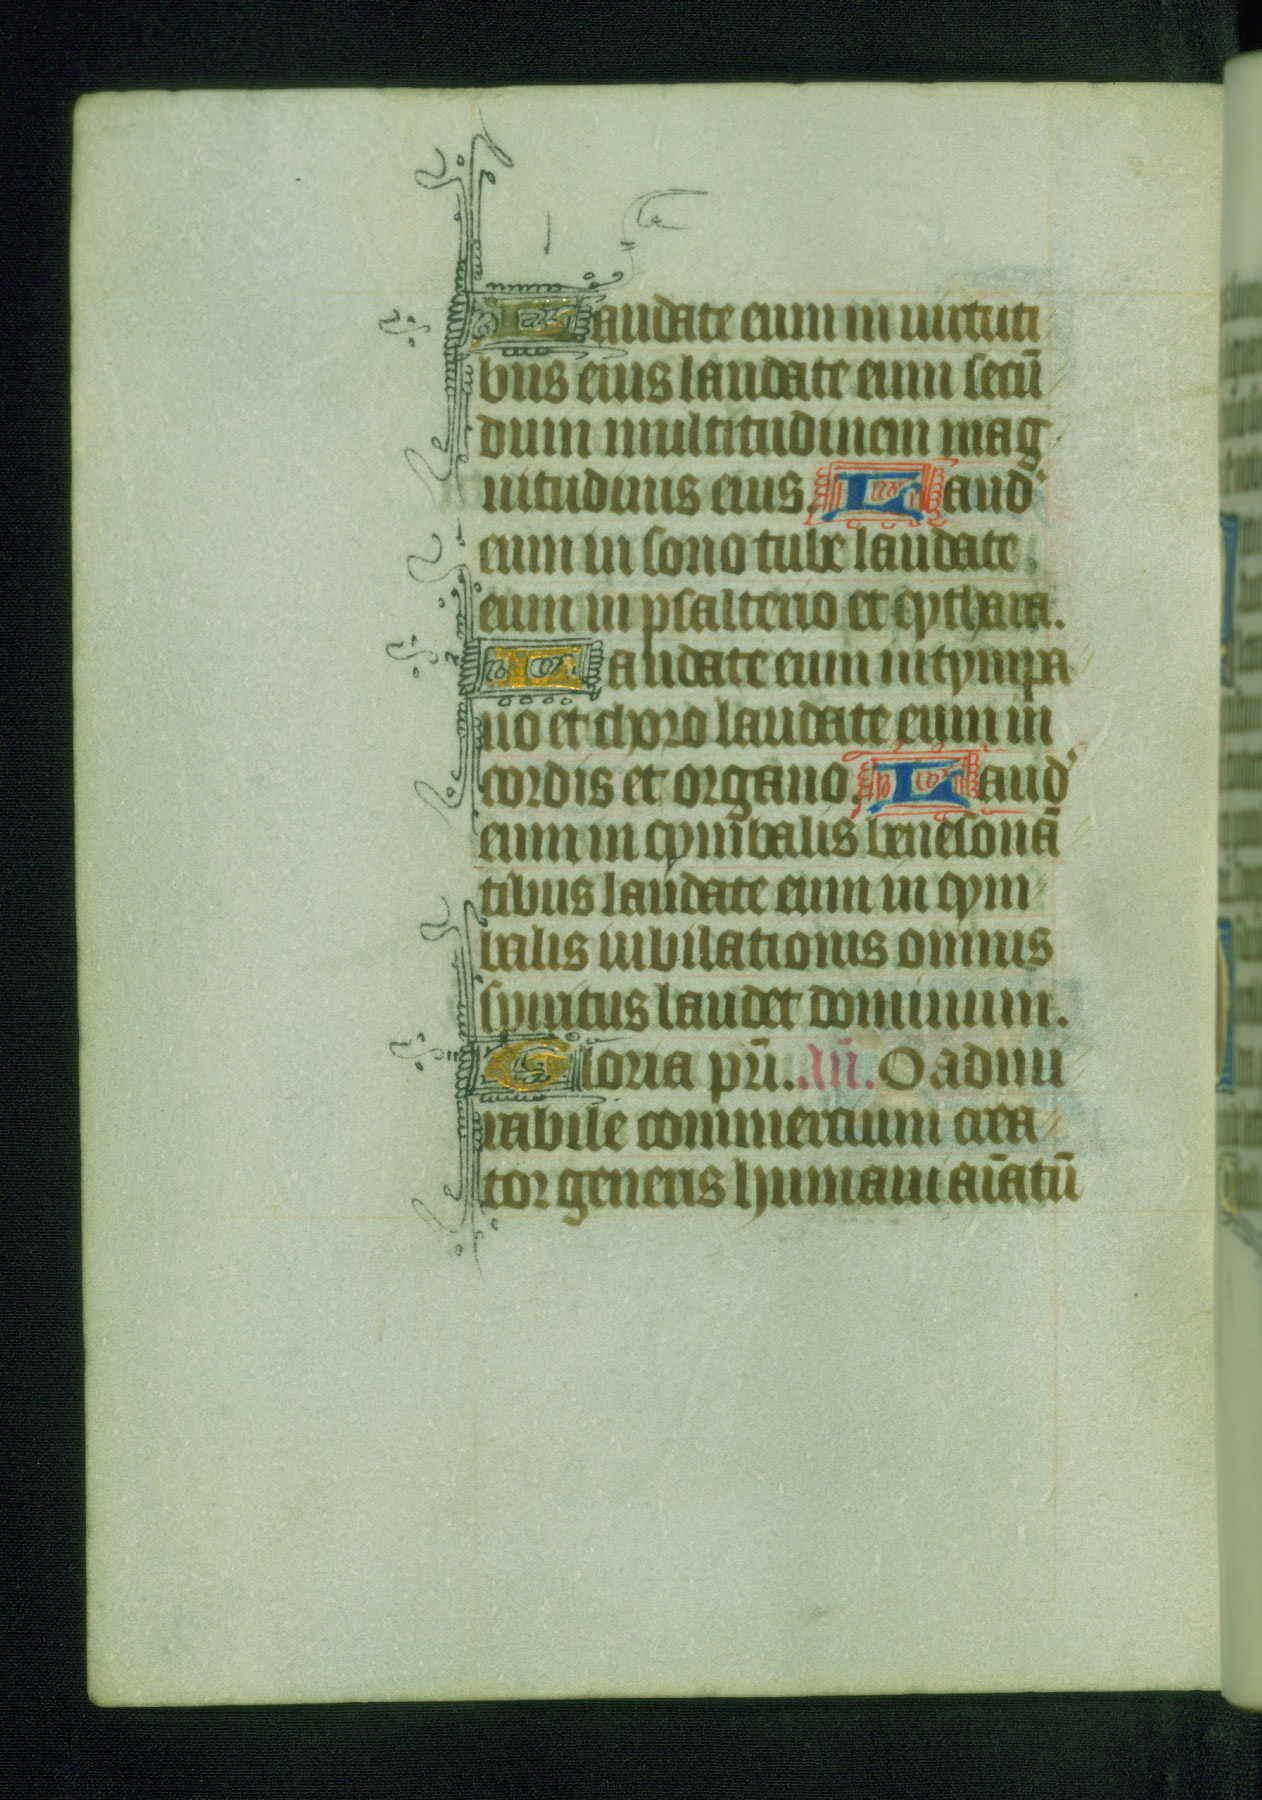 Laudate eum in uirtuti
bus eius laudate eum secū
dum multitudinem mag
nitudinis eius. Laud'
eum in sono tube laudate
eum in psalterio et cythara.
Laudate eum in tympa
no et choro laudate eum in
cordis et organo. Laud'
eum in cymbalis benesonā
tibus laudate eum in cym
balis iubilationis omnis
spiritus laudet dominum.
Gloria pr̄i. Añ. O admi
rabile commercium crea
tor generis humani aīatū